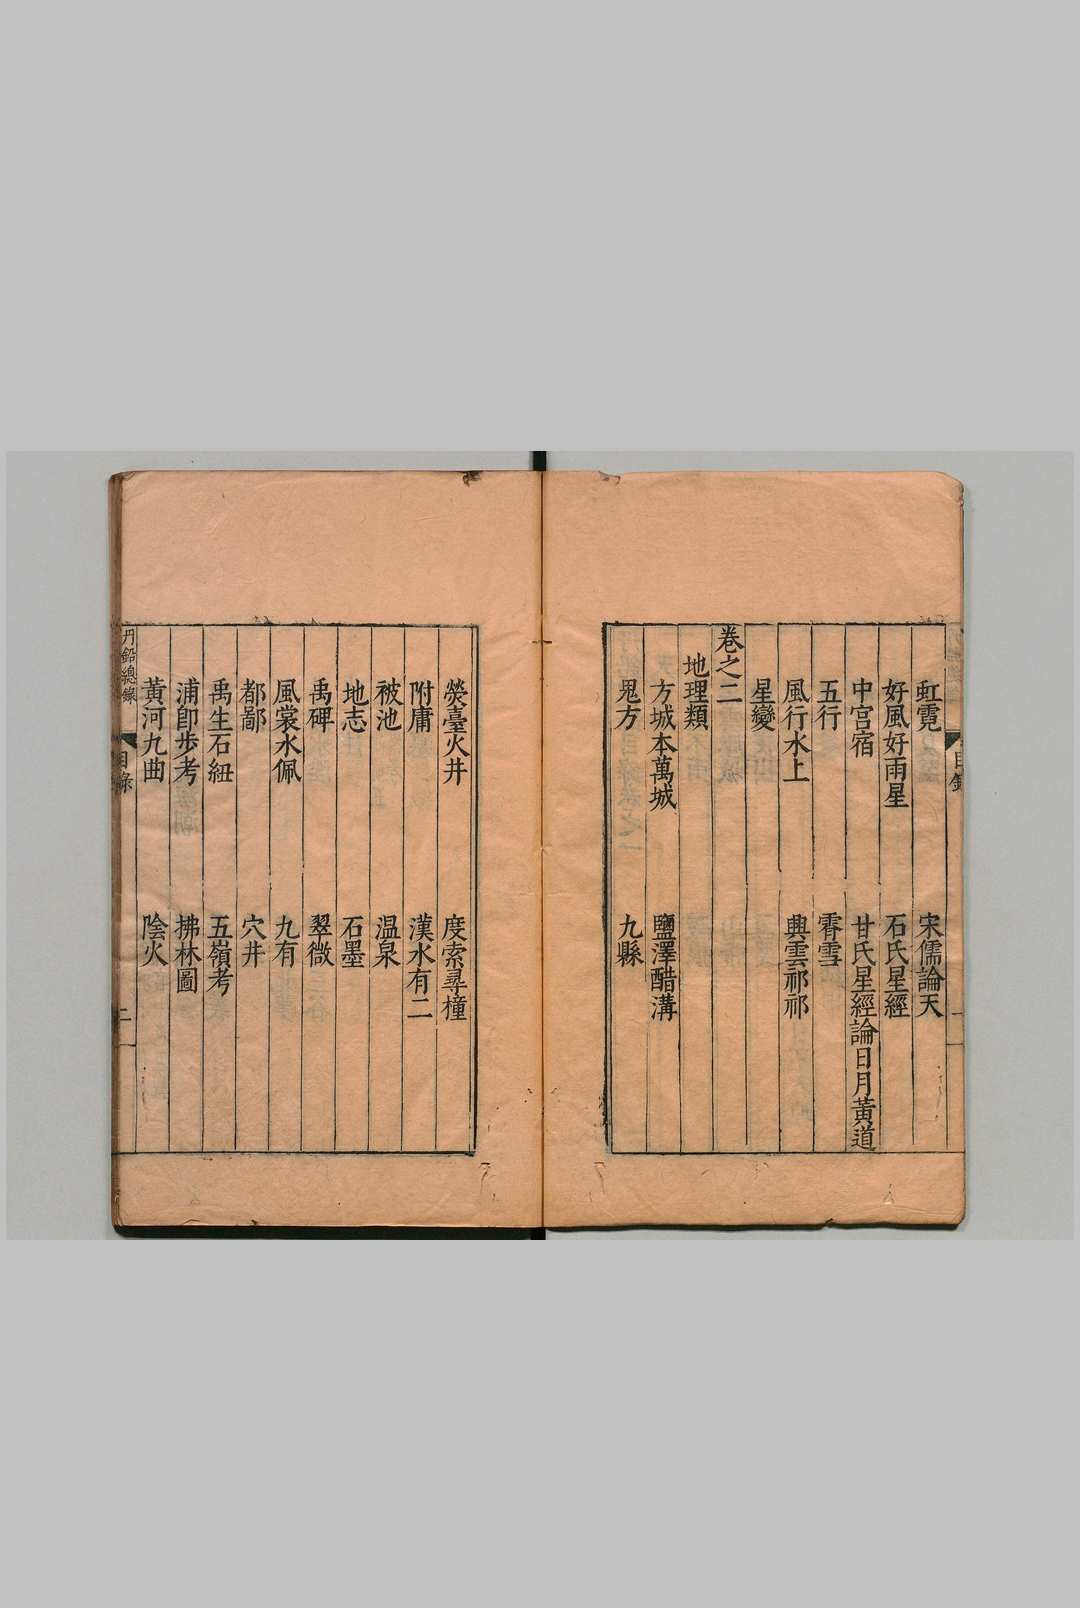 虹霓　宋儒論天
好風好雨星　石氏星經
中宫宿　甘氏星經論日月黃道
五行　霽雪
風行水上　興雲祁祁
星變
卷之二
地理類
方城本萬城　鹽澤醋溝
鬼方　九縣
熒臺火井　度索尋橦
附庸　漢水有二
被池　温泉
地志　石墨
禹碑　翠微
風裳水佩　九有
都鄙　穴井
禹生石紐　五嶺考
浦卽步考　拂林圖
黃河九曲　陰火
丹鉛總錄　目錄　二